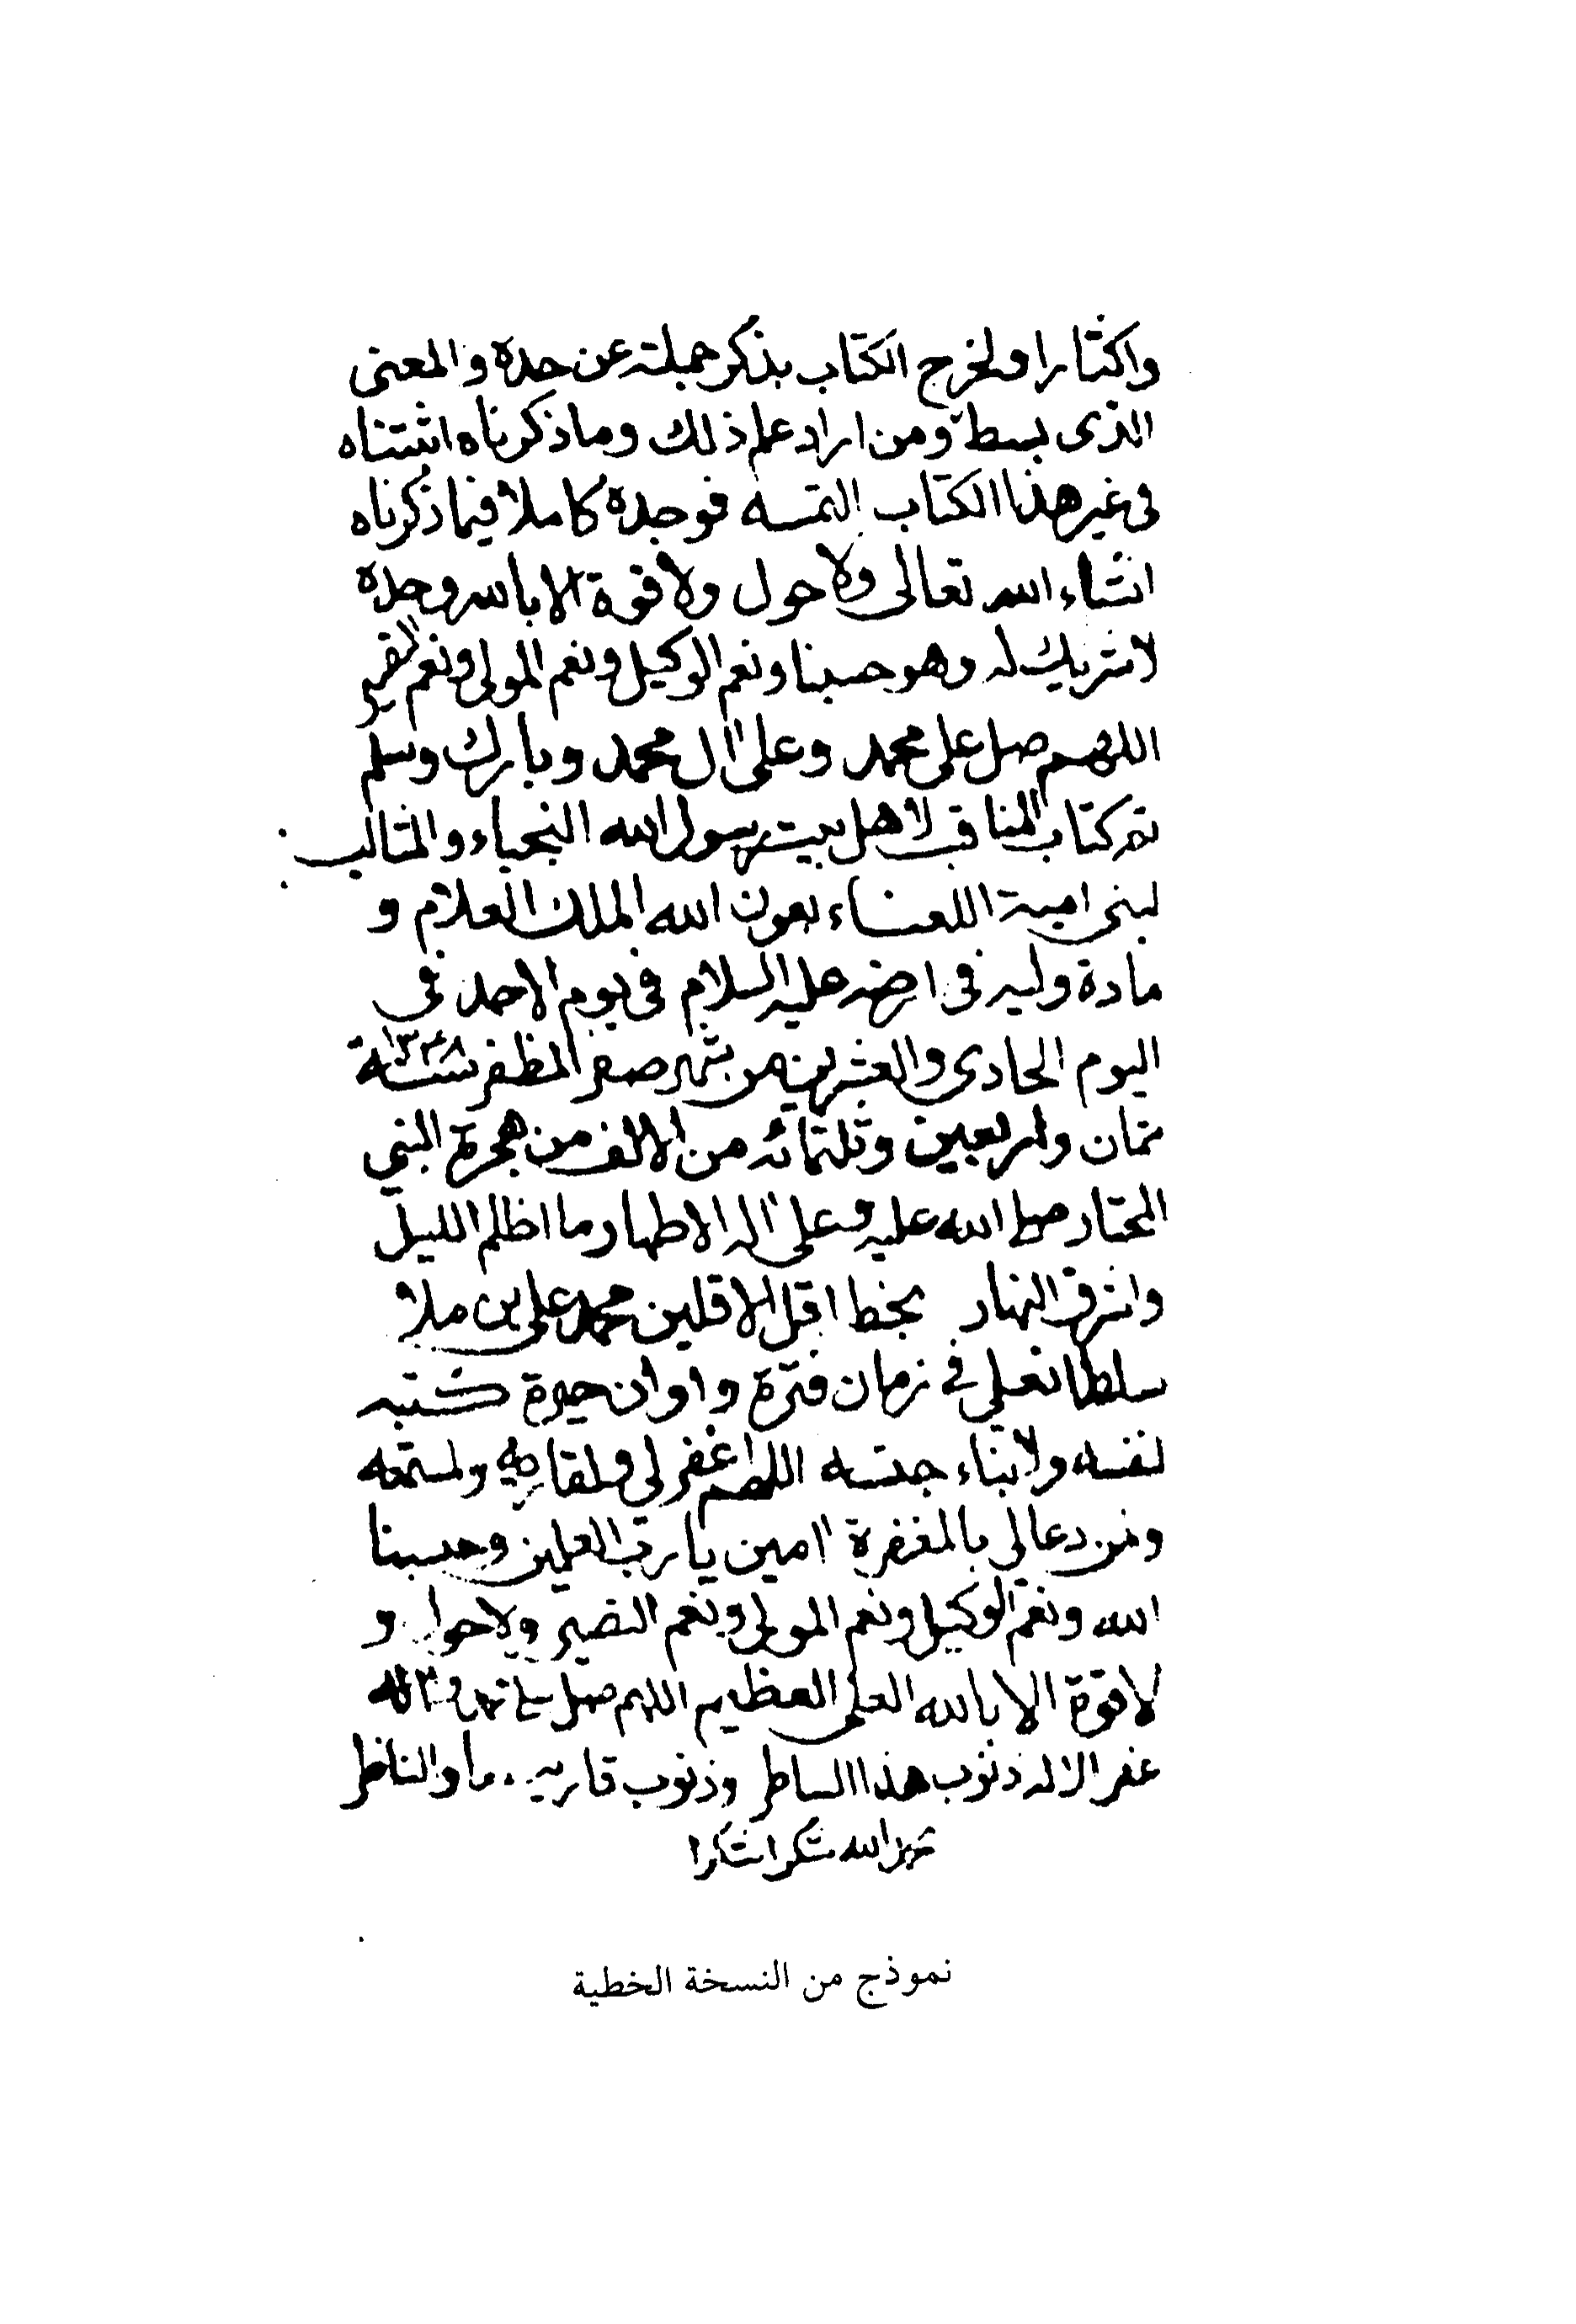 واكثارا ولخرج الكتاب بذكر جملته عن حدة والمعنى
الذى بسط ومن اراد علم ذلك وما ذكرناه اثبتناه
فى غير هذا الكتاب التمسه فوجده كاملا فيما ذكرناه
انشاء الله تعالى ولا حول ولا قوة الا بالله وحده
لا شريك له وهو حسبنا ونعم الوكيل ونعم المولى ونعم النصير
اللهم صل على محمد وعلى آل محمد وبارك وسلم
تم كتاب المناقب لاهل بيت رسول الله النجباء والمثالب
لبنى امية اللعناء بعون الله الملك العلام و
مادة وليه فى ارضه عليه السلام فى يوم الاحد فى
اليوم الحادى والعشرين من شهر صفر المظفر سنة ١٣٤٨
ثمان واربعين وثلثمائه من الالف من هجرة النبي
المختار صلى الله عليه وعلى آله الاطهار ما اظلم الليل
واشرق النهار بخط اقل الاقلين محمد على بن ملا
سلطانعلي في زمان فترة واوان حيرة كتبه
لنفسه ولابناء جنسه اللهم اغفر لي ولقاريه ولمستمعه
ومن دعا لي بالمغفرة آمين يا رب العلمين وحسبنا
الله ونعم الوكيل ونعم المولى ونعم النصير ولا حول و
لا قوة الا بالله العلى العظيم اللهم صل على محمد وآله
غفر الاله ذنوب هذا الساطر وذنوب قاريه والناظر
الله شكرا شكرا
نموذج من النسخة الخطية